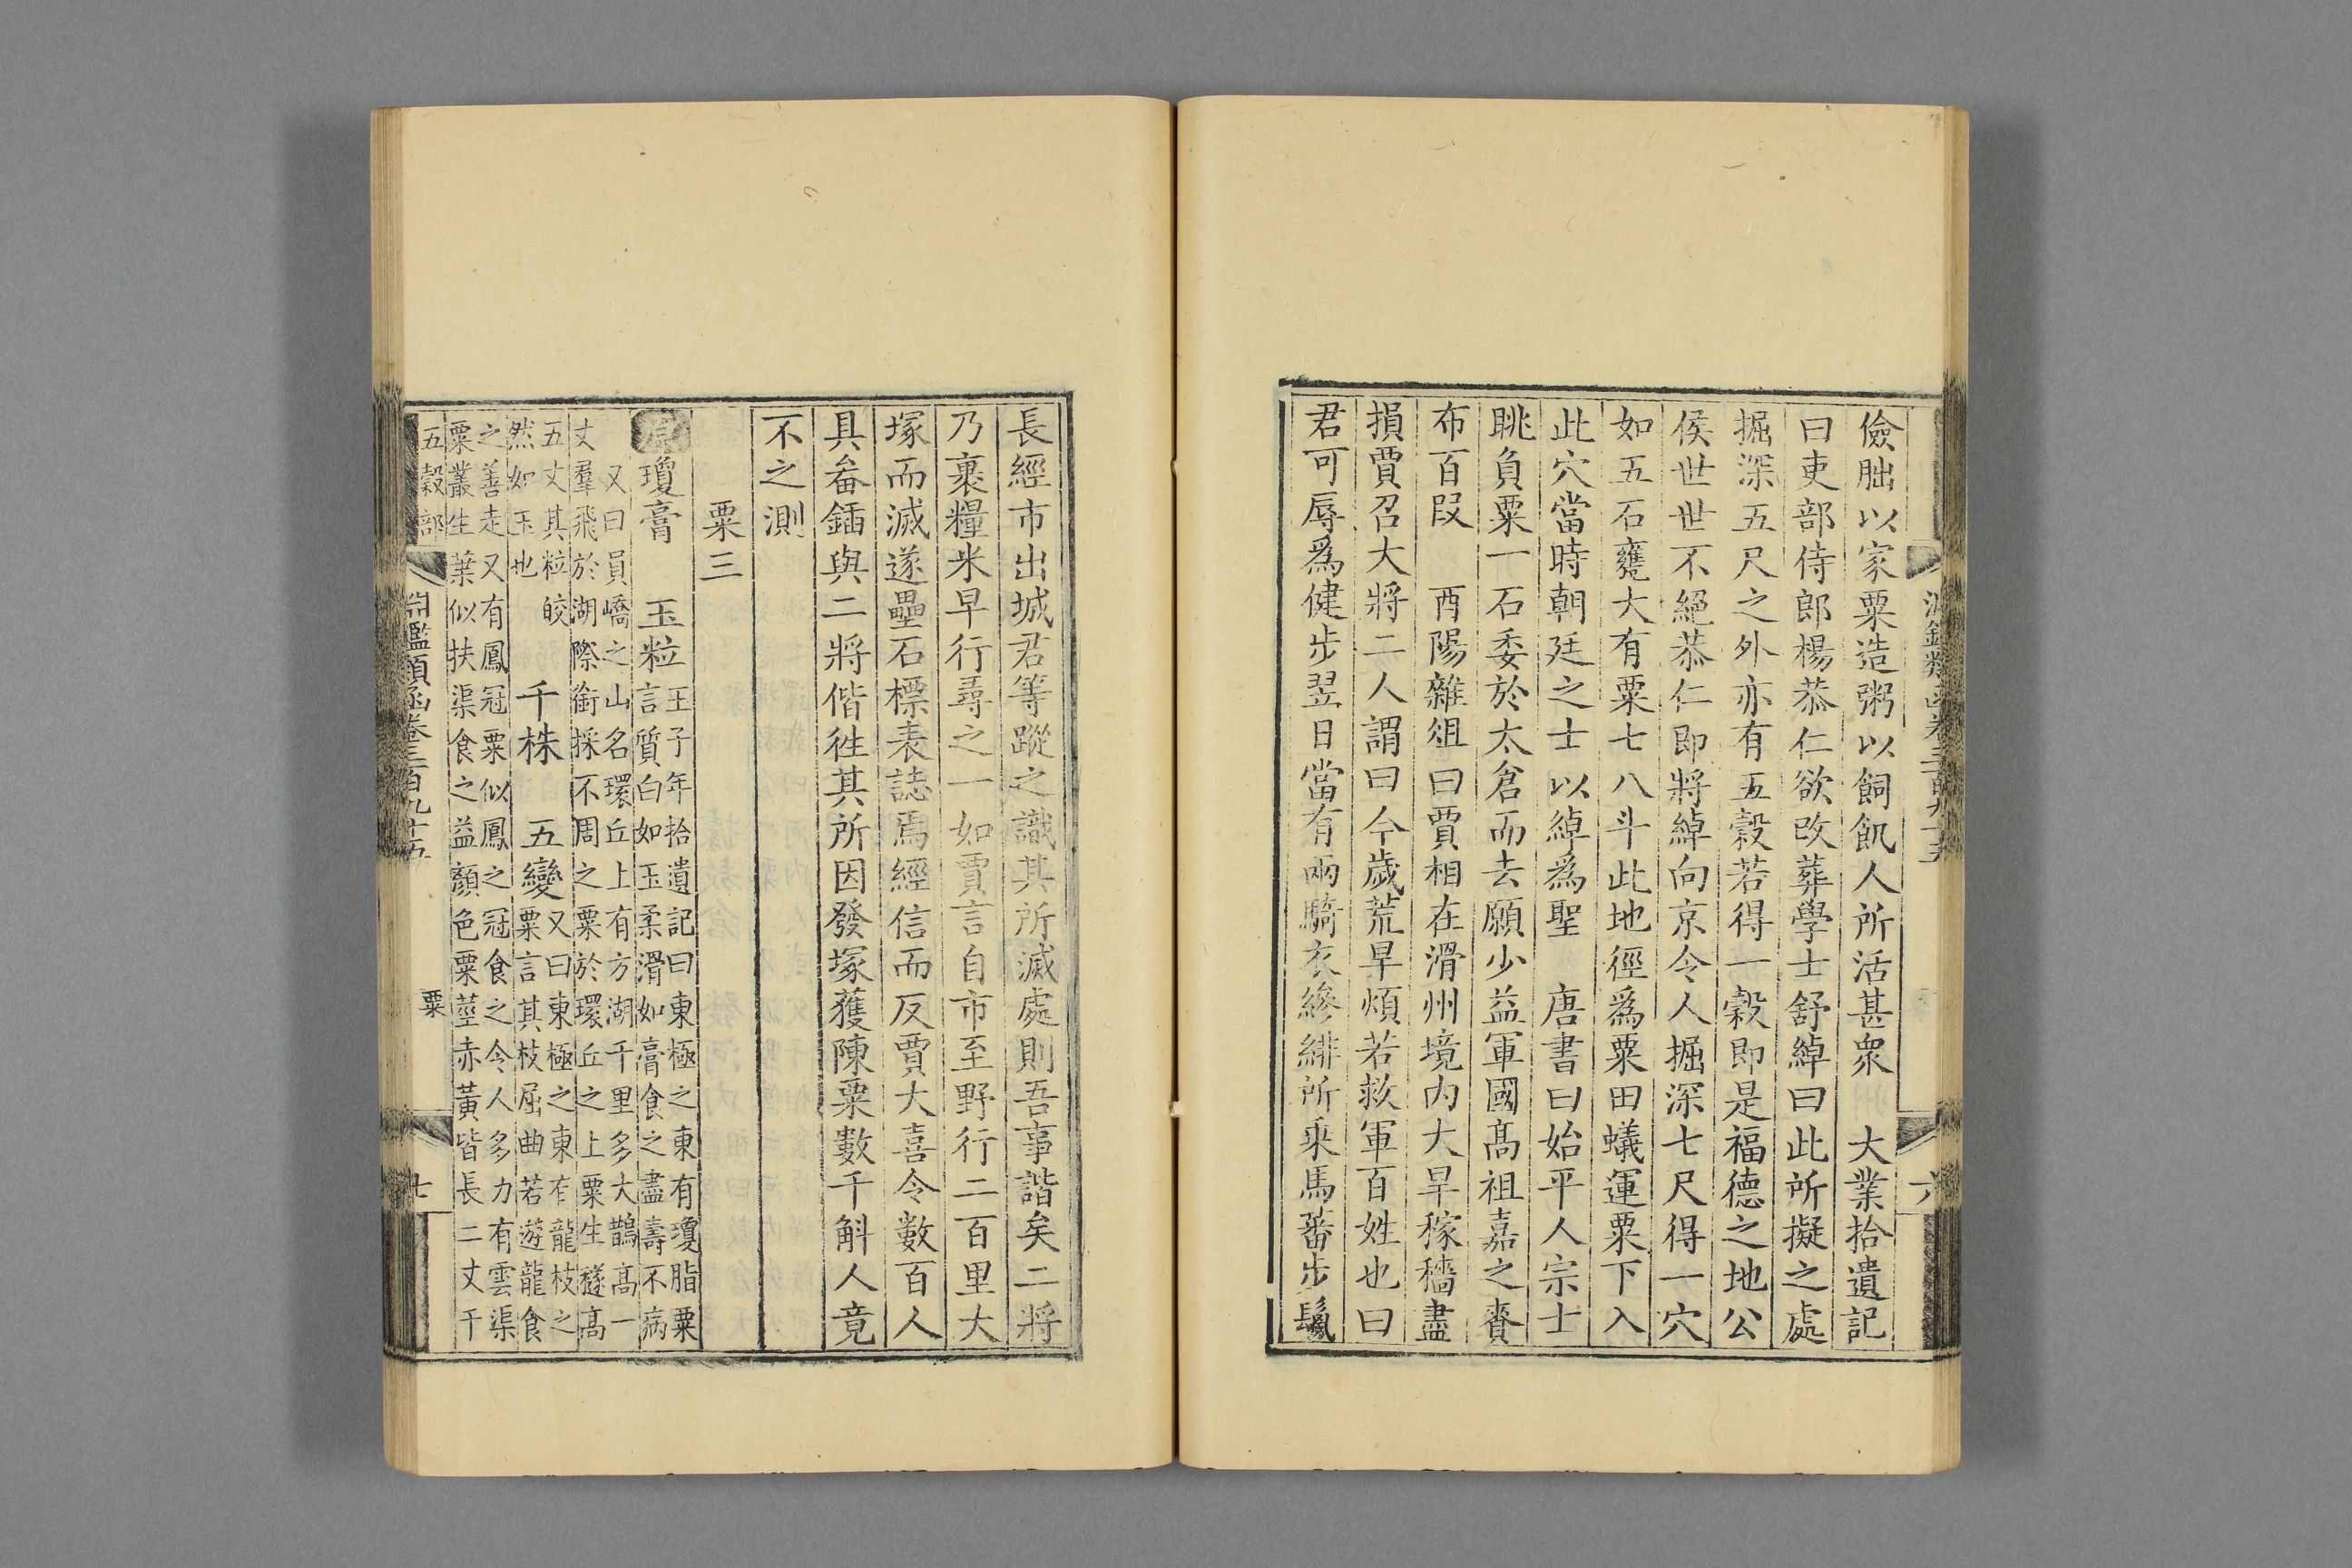 淵鑑類函卷三百九十五
六
儉朏以家粟造粥以飼飢人所活甚衆　大業拾遺記
曰吏部侍郎楊恭仁欲改葬學士舒綽曰此所擬之處
掘深五尺之外亦有五穀若得一穀即是福德之地公
侯世世不絕恭仁即將綽向京令人掘深七尺得一穴
如五石甕大有粟七八斗此地徑爲粟田蟻運粟下入
此穴當時朝廷之士以綽爲聖　唐書曰始平人宗士
眺負粟一石委於太倉而去願少益軍國髙祖嘉之賚
布百段　酉陽雜俎曰賈相在滑州境内大旱稼穡盡
損賈召大將二人謂曰今歲荒旱煩若救軍百姓也曰
君可辱爲健步翌日當有兩騎衣縿緋所乘馬蕃步鬛
長經市出城君等蹤之識其所滅處則吾事諧矣二將
乃裹糧米早行尋之一如賈言自市至野行二百里大
塚而滅遂壘石標表誌焉經信而反賈大喜令數百人
具畚鍤與二將偕徃其所因發塚獲陳粟數千斛人竟
不之測
粟三
原瓊膏　玉粒王子年拾遺記曰東極之東有瓊脂粟
言質白如玉柔滑如膏食之盡壽不病
又曰員嶠之山名環丘上有方湖千里多大鵲髙一
丈羣飛於湖際銜採不周之粟於環丘之上粟生𥠖髙
五丈其粒皎
然如玉也
千株　五變又曰東極之東有龍枝之
粟言其枝屈曲若遊龍食
之善走又有鳳冠粟似鳳之冠食之令人多力有雲渠
粟叢生葉似扶渠食之益顏色粟莖赤黄皆長二丈千
五穀部
淵鑑類函卷三百九十五
粟
七